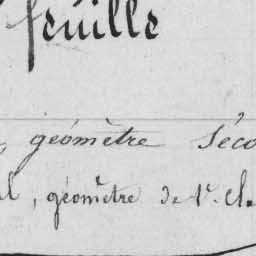 feuille
, géomètre Séco
l, géomètre de 1e. Cl.